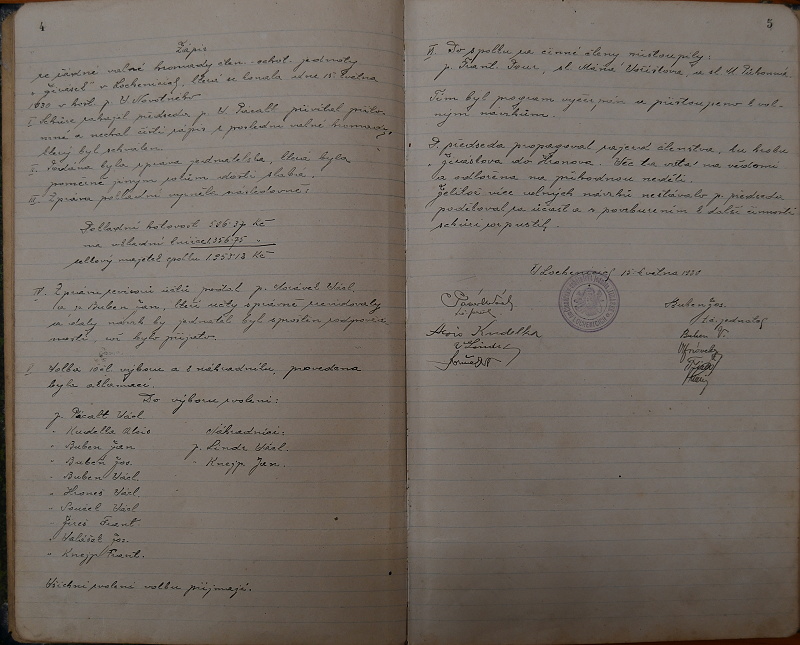 4
Zápis
ze řádné valné hromady člen. ochot. jednoty
v Lochenicích, která se konala dne 15. května
1930 v host. p. V. Novotného
I. Schůzi zahájil předseda p. V. Pacalt přivítal přítom-
né a nechal čísti zápis z poslední valné hromady,
který byl schválen.
II. Podána byla zpráva jednatelská, která byla
poměrně jiným rokům dosti slabá.
III. Zpráva pokladní vyzněla následovně:
Pokladní hotovost 526·37 Kč
na vkladní knížce 1356·75 "
celkový majetek spolku Kč
IV. Zprávu revisorů účtů podal p. Václ.
a p. Buben Jan, kteří účty správně zrevidovaly
a daly návrh by jednatel byl sproštěn zodpověd-
nosti, což bylo přijato.
V. Volba 10čl. výboru a 2 náhradníků, provedena
byla aklamací.
Do výboru zvoleni:
p. Pacalt Václ.
" Kudelka Alois
Náhradníci:
" Buben Jan
p. Lindr Václ.
" Buben Jos.
" Knejp Jan.
" Buben Václ.
" Hroneš Václ.
" Souček Václ.
" Jereš Frant.
" Jos.
" Knejp Frant.
Všichni zvolení volbu přijmají.
5
VI. Do spolku za činné členy vstoupily:
p. Frant. sl. Máňa a sl. M.
Tím byl program vyčerpán a přistoupeno k vol-
ným návrhům.
P. předseda propagoval zájezd členstva, ku hrobu
do Hronova. Věc ta vzata na vědomí
a odložena na příhodnou neděli.
Jelikož více volných návrhů nestávalo p. předseda
poděkoval za účast a s povzbuzením k další činnosti
schůzi rozpustil.
V Lochenicích 15. května 1930
Buben Jos.
t.č. jednatel
Alois Kudelka
Buben V.
V. Lindr